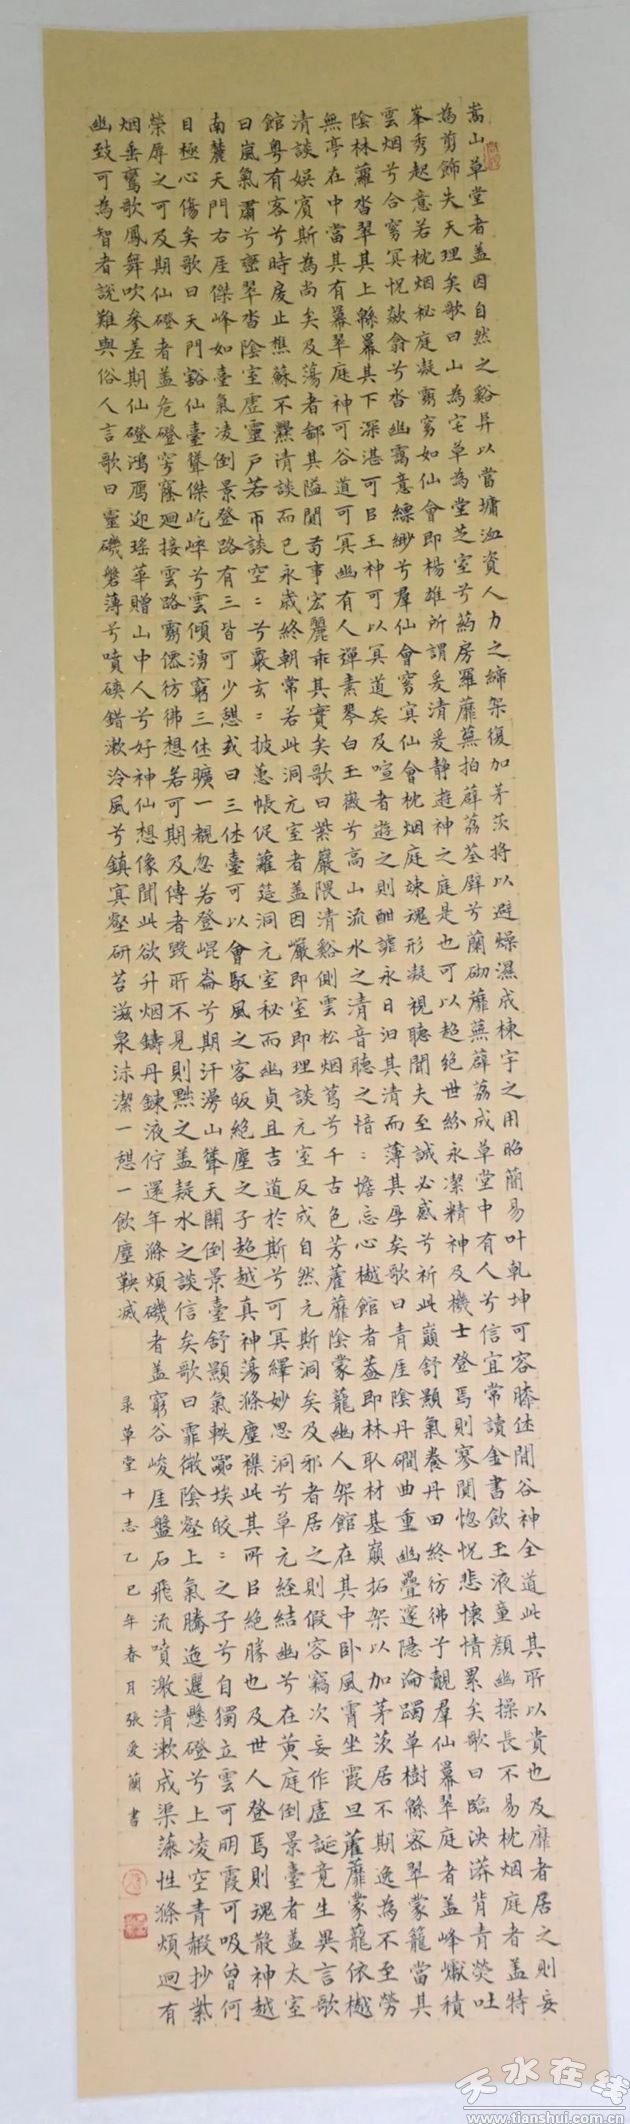 嵩山草堂者盖因自然之谿㠯以當墉洫資人力之締架復加茅茨將以避燥濕成棟宇之用昭簡易叶乾坤可容膝休閒谷神全道此其所以貴也及靡者居之則妄
為剪飾失天理矣歌曰山為宅草為堂芝室兮葯房羅蘼蕪拍薜荔荃壁兮蘭砌蘼蕪薜荔成草堂中有人兮信宜常讀金書飲玉液童顏幽操長不易枕烟庭者盖特
峯秀起意若枕烟秘庭凝霸窅如仙會即楊雄所謂爰清爰静遊神之庭是也可以超絕世紛永潔精神及機士登焉則寥闃惚怳悲懷情累矣歌曰臨泱漭背青熒吐
雲烟兮合窅冥怳歘翕兮沓幽靄意縹緲兮羣仙會窅冥仙會枕烟庭竦魂形凝視聽聞夫至誠必感兮祈此巔舒顥氣養丹田終彷彿兮覯羣仙冪翠庭者盖峰巘積
陰林蘿沓翠其上緜冪其下深湛可㠯王神可以冥道矣及喧者遊之則酣謔永日汩其清而薄其厚矣歌曰青厓陰丹磵曲重幽疊邃隱淪躅草樹緜密翠蒙籠當其
無亭在中當其有冪翠庭神可谷道可冥幽有人彈素琴白玉徽兮高山流水之清音聽之愔=澹忘心樾館者盖即林取材基巔拓架以加茅茨居不期逸為不至勞
清談娛賓斯為尚矣及蕩者鄙其隘閒苟事宏麗乖其實矣歌曰紫巖隈清谿側雲松烟蔦兮千古色芳蘿蘼陰蒙籠幽人架館在其中卧風霄坐霞旦蘿蘼蒙蘢依樾
館粵有客兮時戾止樵蘇不爨清談而已永歲終朝常若此洞元室者盖因巖即室即理談元室反成自然元斯洞矣及邪者居之則假容竊次妄作虛誕竟生異言歌
曰嵐氣肅兮巒翠沓陰室虛靈戶若帀談空=兮覈玄=披蕙帳促蘿筵洞元室秘而幽貞且吉道於斯兮可冥繹妙思洞兮草元經結幽兮在黃庭倒景臺者盖太室
南麓天門右厓傑峰如臺氣凌倒景登路有三皆可少憩或曰三休臺可以會馭風之客皈絕塵之子超越真神蕩滌塵襟此其所㠯絕勝也及世人登焉則魂散神越
目極心傷矣歌曰天門豁仙臺聳傑屹崒兮雲傾湧窮三休曠一覩忽若登崐崙兮期汗漫山聳天關倒景臺舒顥氣軼嚻埃皎=之子兮自獨立雲可朋霞可吸曾何
榮辱之可及期仙磴者盖危磴穹窿迴接雲路霸僊彷彿想若可期及傳者毀所不見則黜之盖疑水之談信矣歌曰霏微陰壑上氣騰迤邐懸磴兮上凌空青赮抄紫
烟垂鸞歌鳳舞吹參差期仙磴鴻鴈迎瑤華贈山中人兮好神仙想像聞此欲升烟鑄丹鍊液佇還年滌煩磯者盖窮谷峻厓盤石飛流噴激清漱成渠澡性滌煩迴有
幽致可為智者說難與俗人言歌曰靈磯磐薄兮噴磢錯漱泠風兮鎮冥壑研苔滋泉沫潔一憩一飲塵鞅滅
录草堂十志乙巳年春月張爱蘭書
天水在线
www.tianshui.com.cn